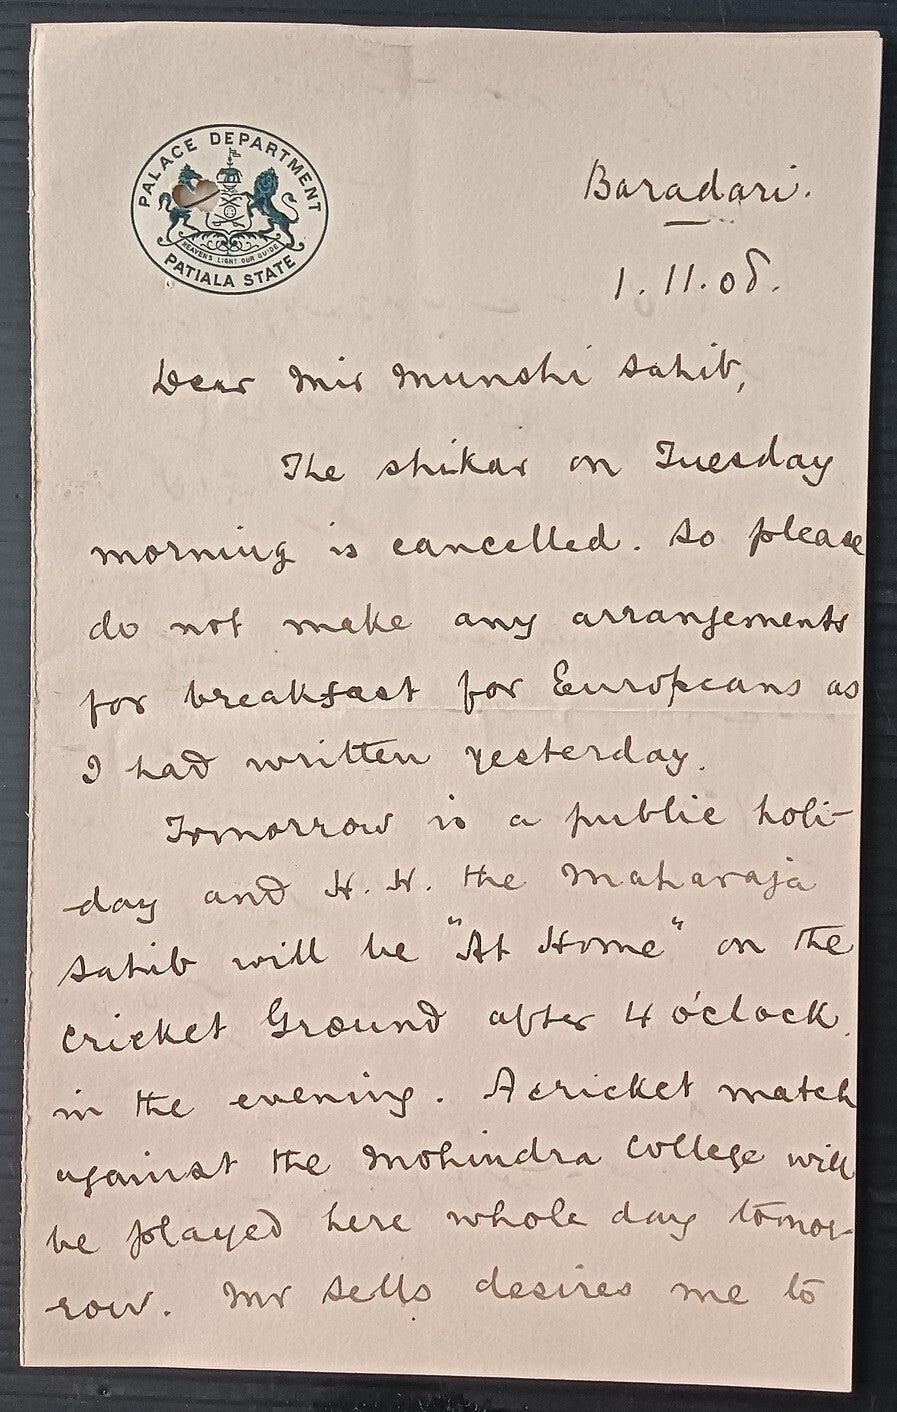 PALACE DEPARTMENT
HEAVEN'S LIGHT OUR GUIDE
PATIALA STATE
Baradari.
1.11.08.
Dear Mir Munshi Sahib,
The shikar on Tuesday
morning is cancelled. So please
do not make any arrangements
for breakfast for Europeans as
I had written yesterday.
Tomorrow is a public holi-
day and H. H. the Maharaja
Sahib will be "At Home" on the
Cricket Ground after 4 o'clock
in the evening. A cricket match
against the Mohindra College will
be played here whole day tomor-
row. Mr Sells desires me to